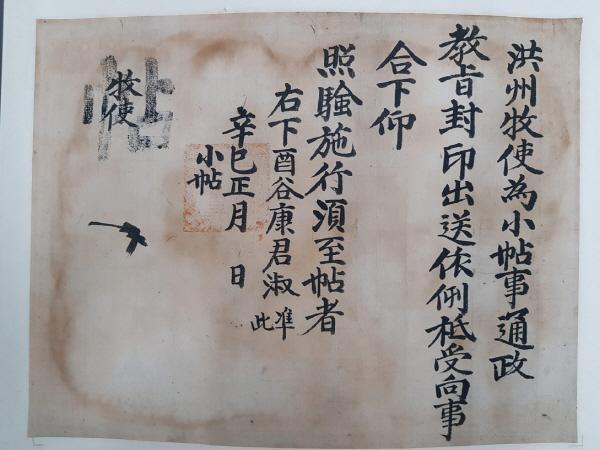 洪州牧使為小帖事通政
教旨封印出送依例祗受向事
合下仰
照驗施行湏至帖者
右下酉谷康君淑 准此
辛巳正月 日
小帖
牧使
帖